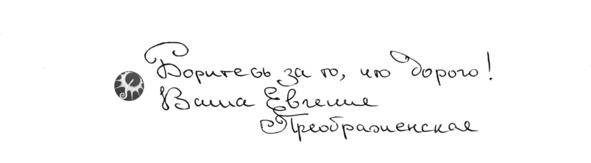 Боритесь за то, что дорого!
Ваша Евгения
Преображенская